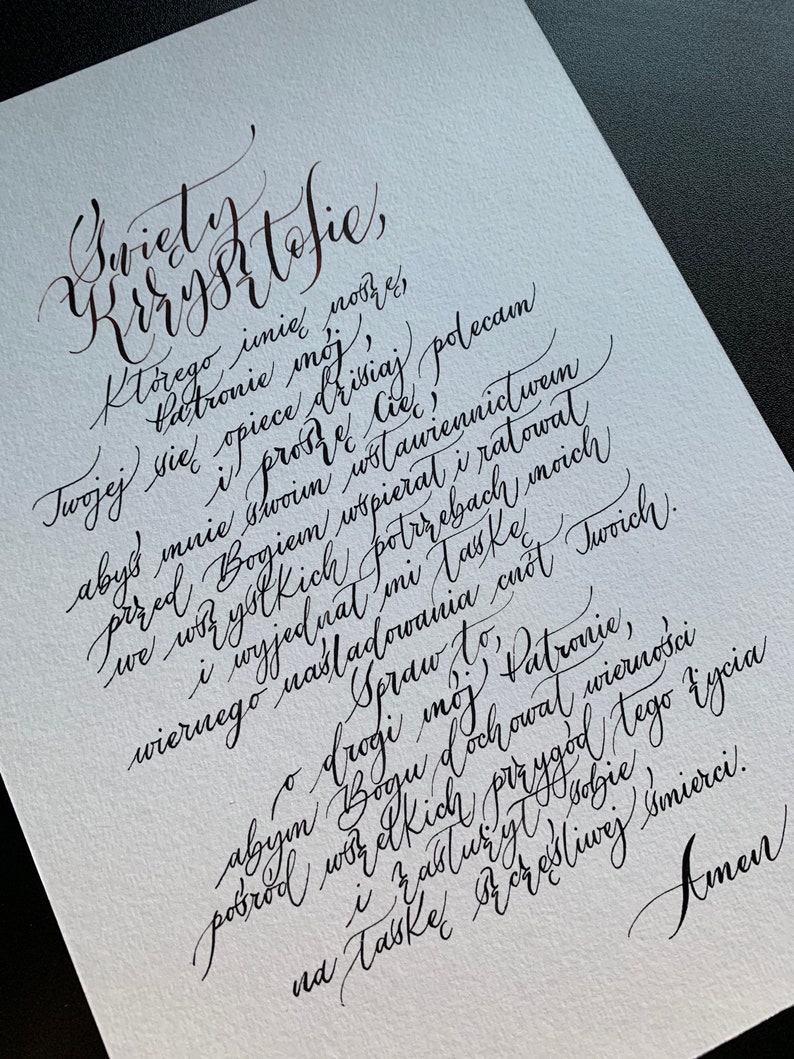 Święty
Krzysztofie,
Którego imię noszę,
Patronie mój,
Twojej się opiece dzisiaj polecam
i proszę Cię,
abyś mnie swoim wstawiennictwem
przed Bogiem wspierał i ratował
we wszystkich potrzebach moich
i wyjednał mi łaskę
wiernego naśladowania cnót Twoich.
Spraw to,
o drogi mój Patronie,
abym Bogu dochował wierności
pośród wszelkich przygód tego życia
i zasłużył sobie,
na łaskę szczęśliwej śmierci.
Amen